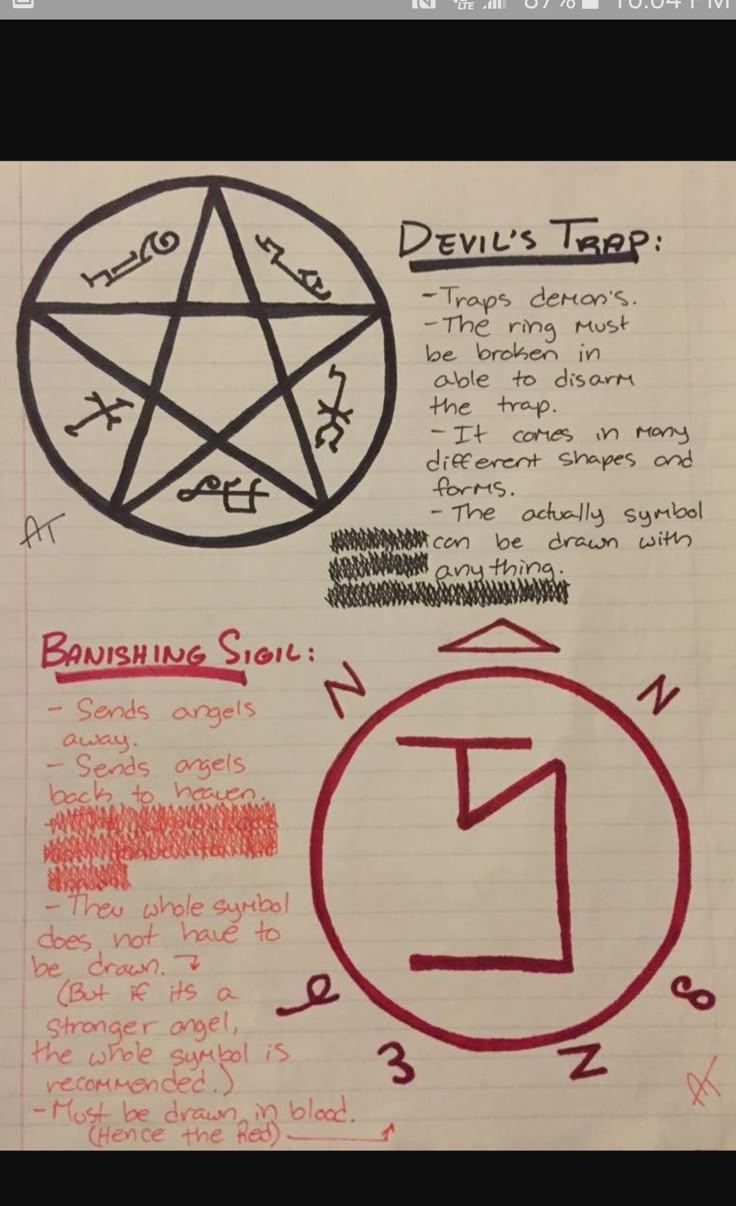 LTE 87% 10:04 PM
DEVIL'S TRAP:
- Traps demon's.
- The ring must
be broken in
able to disarm
the trap.
- It comes in many
different shapes and
forms.
- The actually symbol
can be drawn with
anything.
AT
BANISHING SIGIL:
- Sends angels
away.
- Sends angels
back to heaven.
- Theu whole symbol
does not have to
be drawn.
(But if its a
stronger angel,
the whole symbol is
recommended.)
- Must be drawn in blood.
(Hence the Red)
N
N
3
Z
8
AT